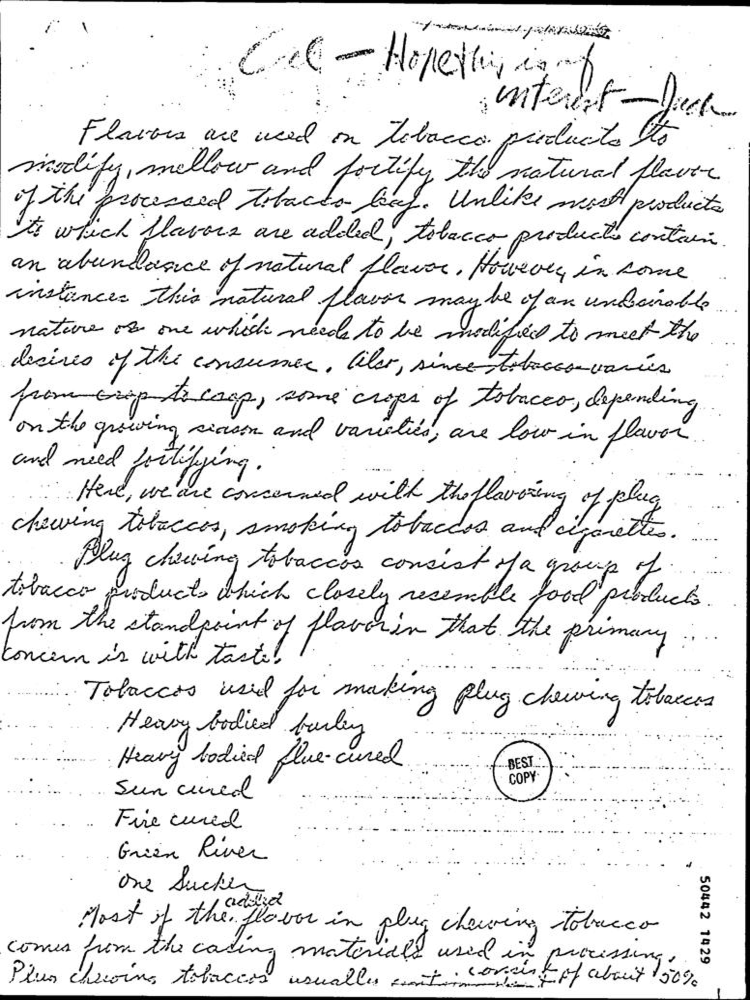 Cal — Hope this is of
interest — Jack
Flavors are used on tobacco products to
modify, mellow and fortify the natural flavor
of the processed tobacco leaf. Unlike most products
to which flavors are added, tobacco products contain
an abundance of natural flavor. However, in some
instances this natural flavor may be of an undesirable
nature or one which needs to be modified to meet the
desires of the consumer. Also, since tobacco varies
from crop to crop, some crops of tobacco, depending
on the growing season and varieties, are low in flavor
and need fortifying.
Here, we are concerned with the flavoring of plug
chewing tobaccos, smoking tobaccos and cigarettes.
Plug chewing tobaccos consist of a group of
tobacco products which closely resemble food products
from the standpoint of flavor in that the primary
concern is with taste.
Tobaccos used for making plug chewing tobaccos
Heavy bodied burley
Heavy bodied flue-cured
BEST
COPY
Sun cured
Fire cured
Green River
One Sucker
Most of the added flavor in plug chewing tobacco
comes from the casing materials used in processing.
Plug chewing tobaccos usually consist of about 50%
50442 1429